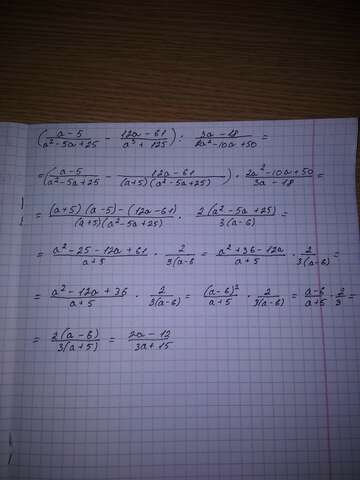 ((a-5)/(a²-5a+25) - (12a-61)/(a³+125)) : (3a-18)/(2a²-10a+50) =
=((a-5)/(a²-5a+25) - (12a-61)/((a+5)(a²-5a+25))) · (2a²-10a+50)/(3a-18) =
= ((a+5)(a-5)-(12a-61))/((a+5)(a²-5a+25)) · (2(a²-5a+25))/(3(a-6)) =
= (a²-25-12a+61)/(a+5) · 2/(3(a-6) = (a²+36-12a)/(a+5) · 2/(3(a-6) =
= (a²-12a+36)/(a+5) · 2/(3(a-6) = (a-6)²/(a+5) · 2/(3(a-6) = (a-6)/(a+5) · 2/3 =
= (2(a-6))/(3(a+5)) = (2a-12)/(3a+15)